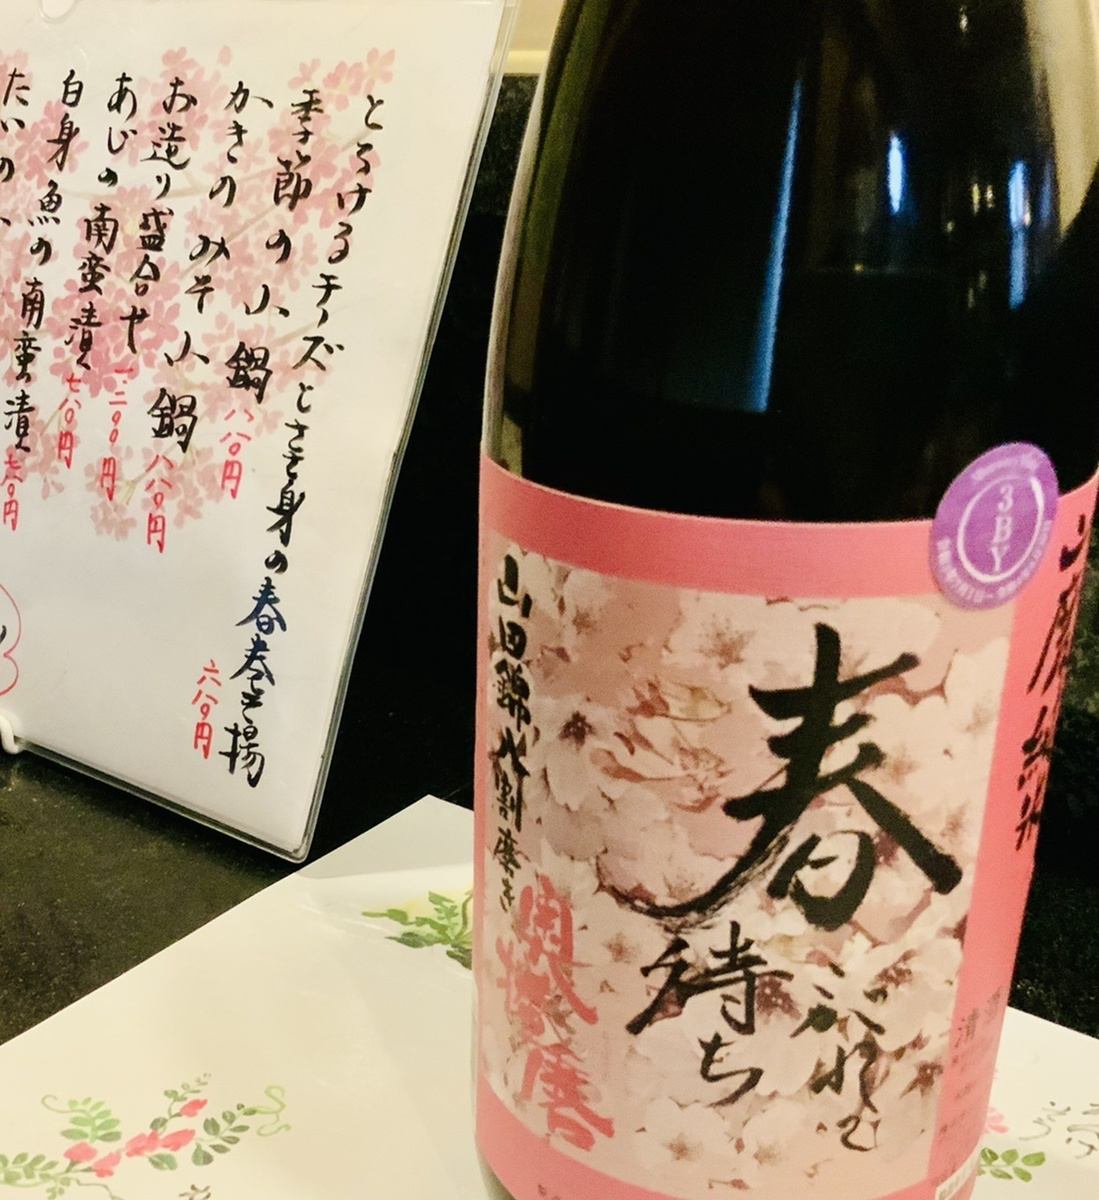 とろけるチーズとささ身の春巻き揚
六八〇円
季節の小鍋
八八〇円
かきのみそ小鍋
八八〇円
お造り盛合せ
一二〇〇円
あじの南蛮漬
七八〇円
白身魚の南蛮漬
七八〇円
たいの
3BY
山廃純米
春
待ち
山田錦八割磨き
奥播磨
清酒